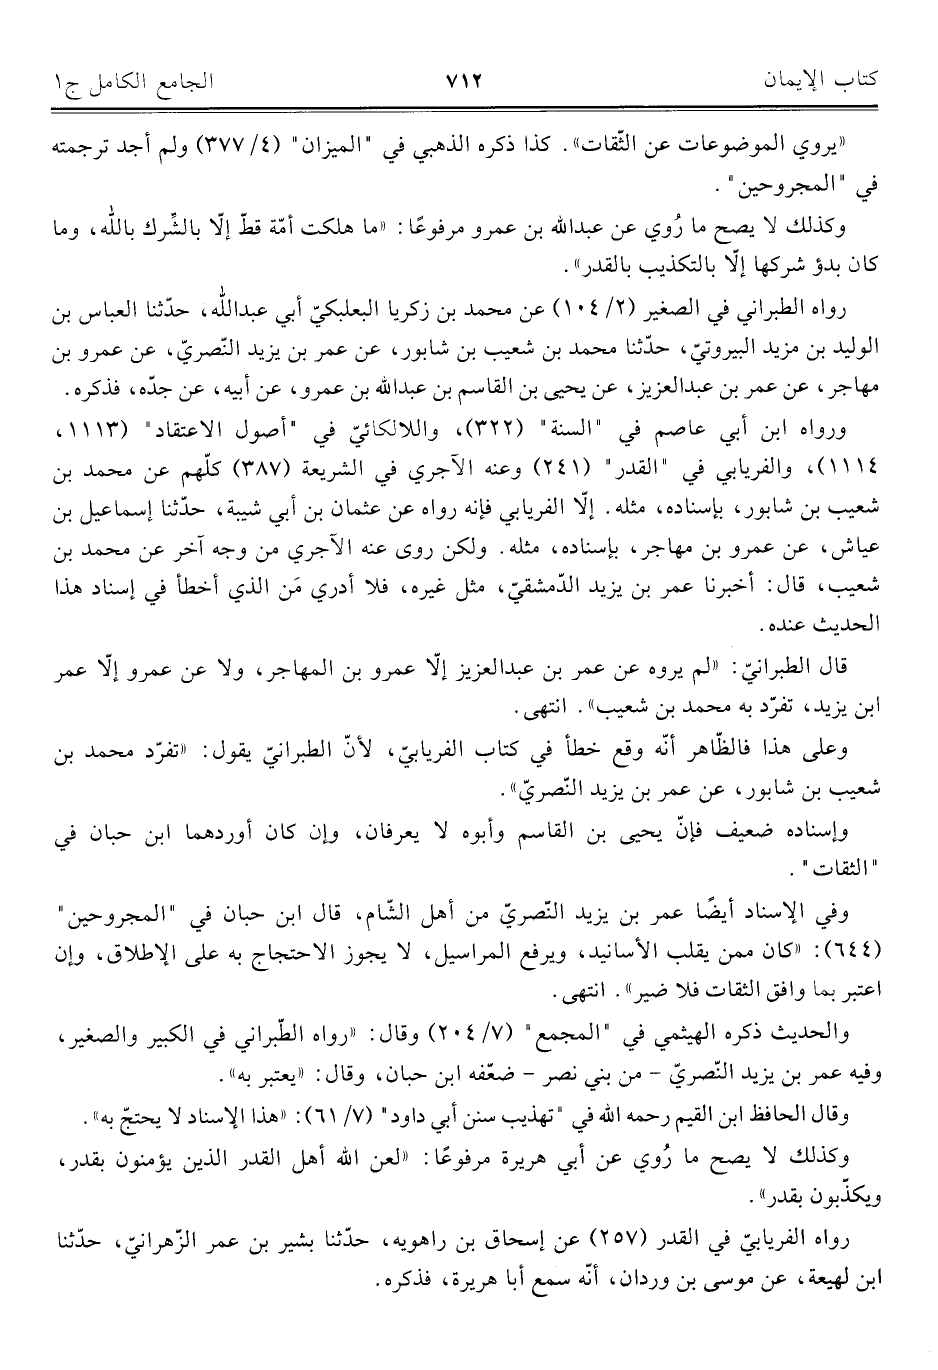 كتاب الإيمان ٧١٢ الجامع الكامل ج١
«يروي الموضوعات عن الثّقات». كذا ذكره الذهبي في "الميزان" (٤/ ٣٧٧) ولم أجد ترجمته
في "المجروحين".
وكذلك لا يصح ما رُوي عن عبدالله بن عمرو مرفوعًا: «ما هلكت أمّة قطّ إلّا بالشِّرك بالله، وما
كان بدؤ شركها إلّا بالتكذيب بالقدر».
رواه الطبراني في الصغير (٢/ ١٠٤) عن محمد بن زكريا البعلبكيّ أبي عبدالله، حدّثنا العباس بن
الوليد بن مزيد البيروتيّ، حدّثنا محمد بن شعيب بن شابور، عن عمر بن يزيد النّصريّ، عن عمرو بن
مهاجر، عن عمر بن عبدالعزيز، عن يحيى بن القاسم بن عبدالله بن عمرو، عن أبيه، عن جدّه، فذكره.
ورواه ابن أبي عاصم في "السنة" (٣٢٢)، واللالكائيّ في "أصول الاعتقاد" (١١١٣،
١١١٤)، والفريابي في "القدر" (٢٤١) وعنه الآجري في الشريعة (٣٨٧) كلّهم عن محمد بن
شعيب بن شابور، بإسناده، مثله. إلّا الفريابي فإنه رواه عن عثمان بن أبي شيبة، حدّثنا إسماعيل بن
عياش، عن عمرو بن مهاجر، بإسناده، مثله. ولكن روى عنه الآجري من وجه آخر عن محمد بن
شعيب، قال: أخبرنا عمر بن يزيد الدّمشقيّ، مثل غيره، فلا أدري مَن الذي أخطأ في إسناد هذا
الحديث عنده.
قال الطبرانيّ: «لم يروه عن عمر بن عبدالعزيز إلّا عمرو بن المهاجر، ولا عن عمرو إلّا عمر
ابن يزيد، تفرّد به محمد بن شعيب». انتهى.
وعلى هذا فالظّاهر أنّه وقع خطأ في كتاب الفريابيّ، لأنّ الطبرانيّ يقول: «تفرّد محمد بن
شعيب بن شابور، عن عمر بن يزيد النّصريّ».
وإسناده ضعيف فإنّ يحيى بن القاسم وأبوه لا يعرفان، وإن كان أوردهما ابن حبان في
"الثقات".
وفي الإسناد أيضًا عمر بن يزيد النّصريّ من أهل الشّام، قال ابن حبان في "المجروحين"
(٦٤٤): «كان ممن يقلب الأسانيد، ويرفع المراسيل، لا يجوز الاحتجاج به على الإطلاق، وإن
اعتبر بما وافق الثقات فلا ضير». انتهى.
والحديث ذكره الهيثمي في "المجمع" (٧/ ٢٠٤) وقال: «رواه الطّبراني في الكبير والصغير،
وفيه عمر بن يزيد النّصريّ - من بني نصر - ضعّفه ابن حبان، وقال: «يعتبر به».
وقال الحافظ ابن القيم رحمه الله في "تهذيب سنن أبي داود" (٧/ ٦١): «هذا الإسناد لا يحتجّ به».
وكذلك لا يصح ما رُوي عن أبي هريرة مرفوعًا: «لعن الله أهل القدر الذين يؤمنون بقدر،
ويكذّبون بقدر».
رواه الفريابيّ في القدر (٢٥٧) عن إسحاق بن راهويه، حدّثنا بشير بن عمر الزّهرانيّ، حدّثنا
ابن لهيعة، عن موسى بن وردان، أنّه سمع أبا هريرة، فذكره.